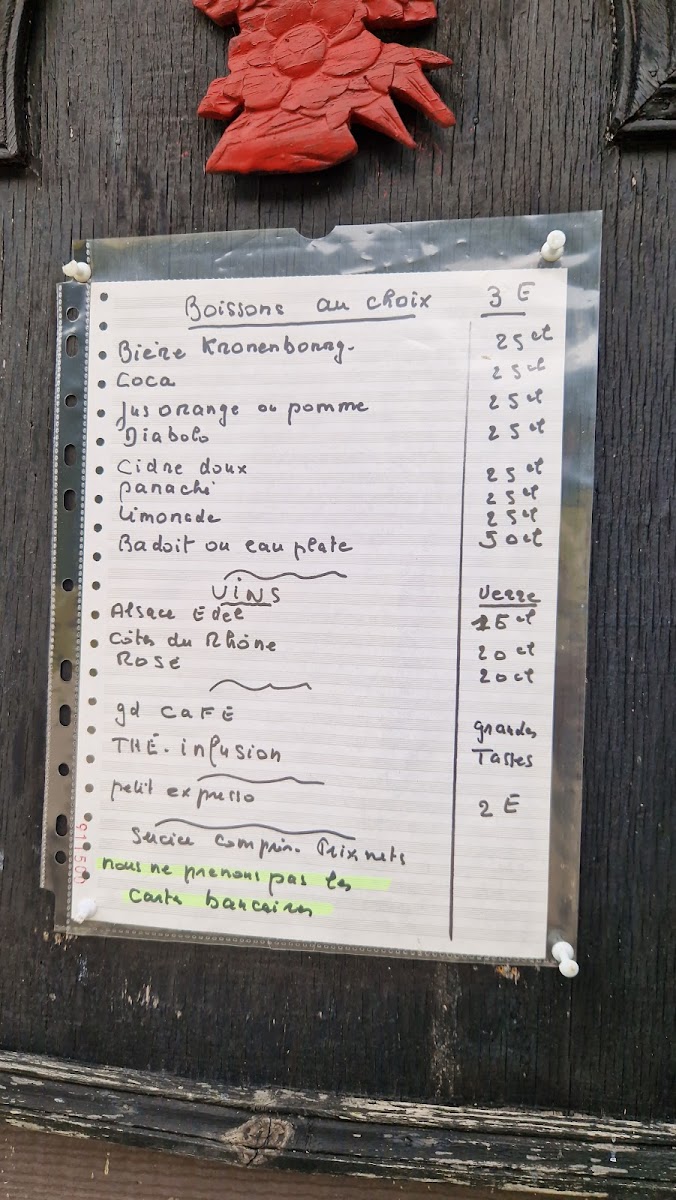 Boissons au choix 3 E
Bière Kronenbourg. 25 cl
Coca 25 cl
Jus orange ou pomme 25 cl
Diabolo 25 cl
Cidre doux 25 cl
panaché 25 cl
limonade 25 cl
Badoit ou eau plate 50 cl
VINS Verre
Alsace Edel 15 cl
Côtes du Rhône 20 cl
ROSÉ 20 cl
gd CAFÉ grandes
THÉ. infusion Tasses
petit expresso 2 E
Service compris. Prix nets
nous ne prenons pas les
carte bancaires